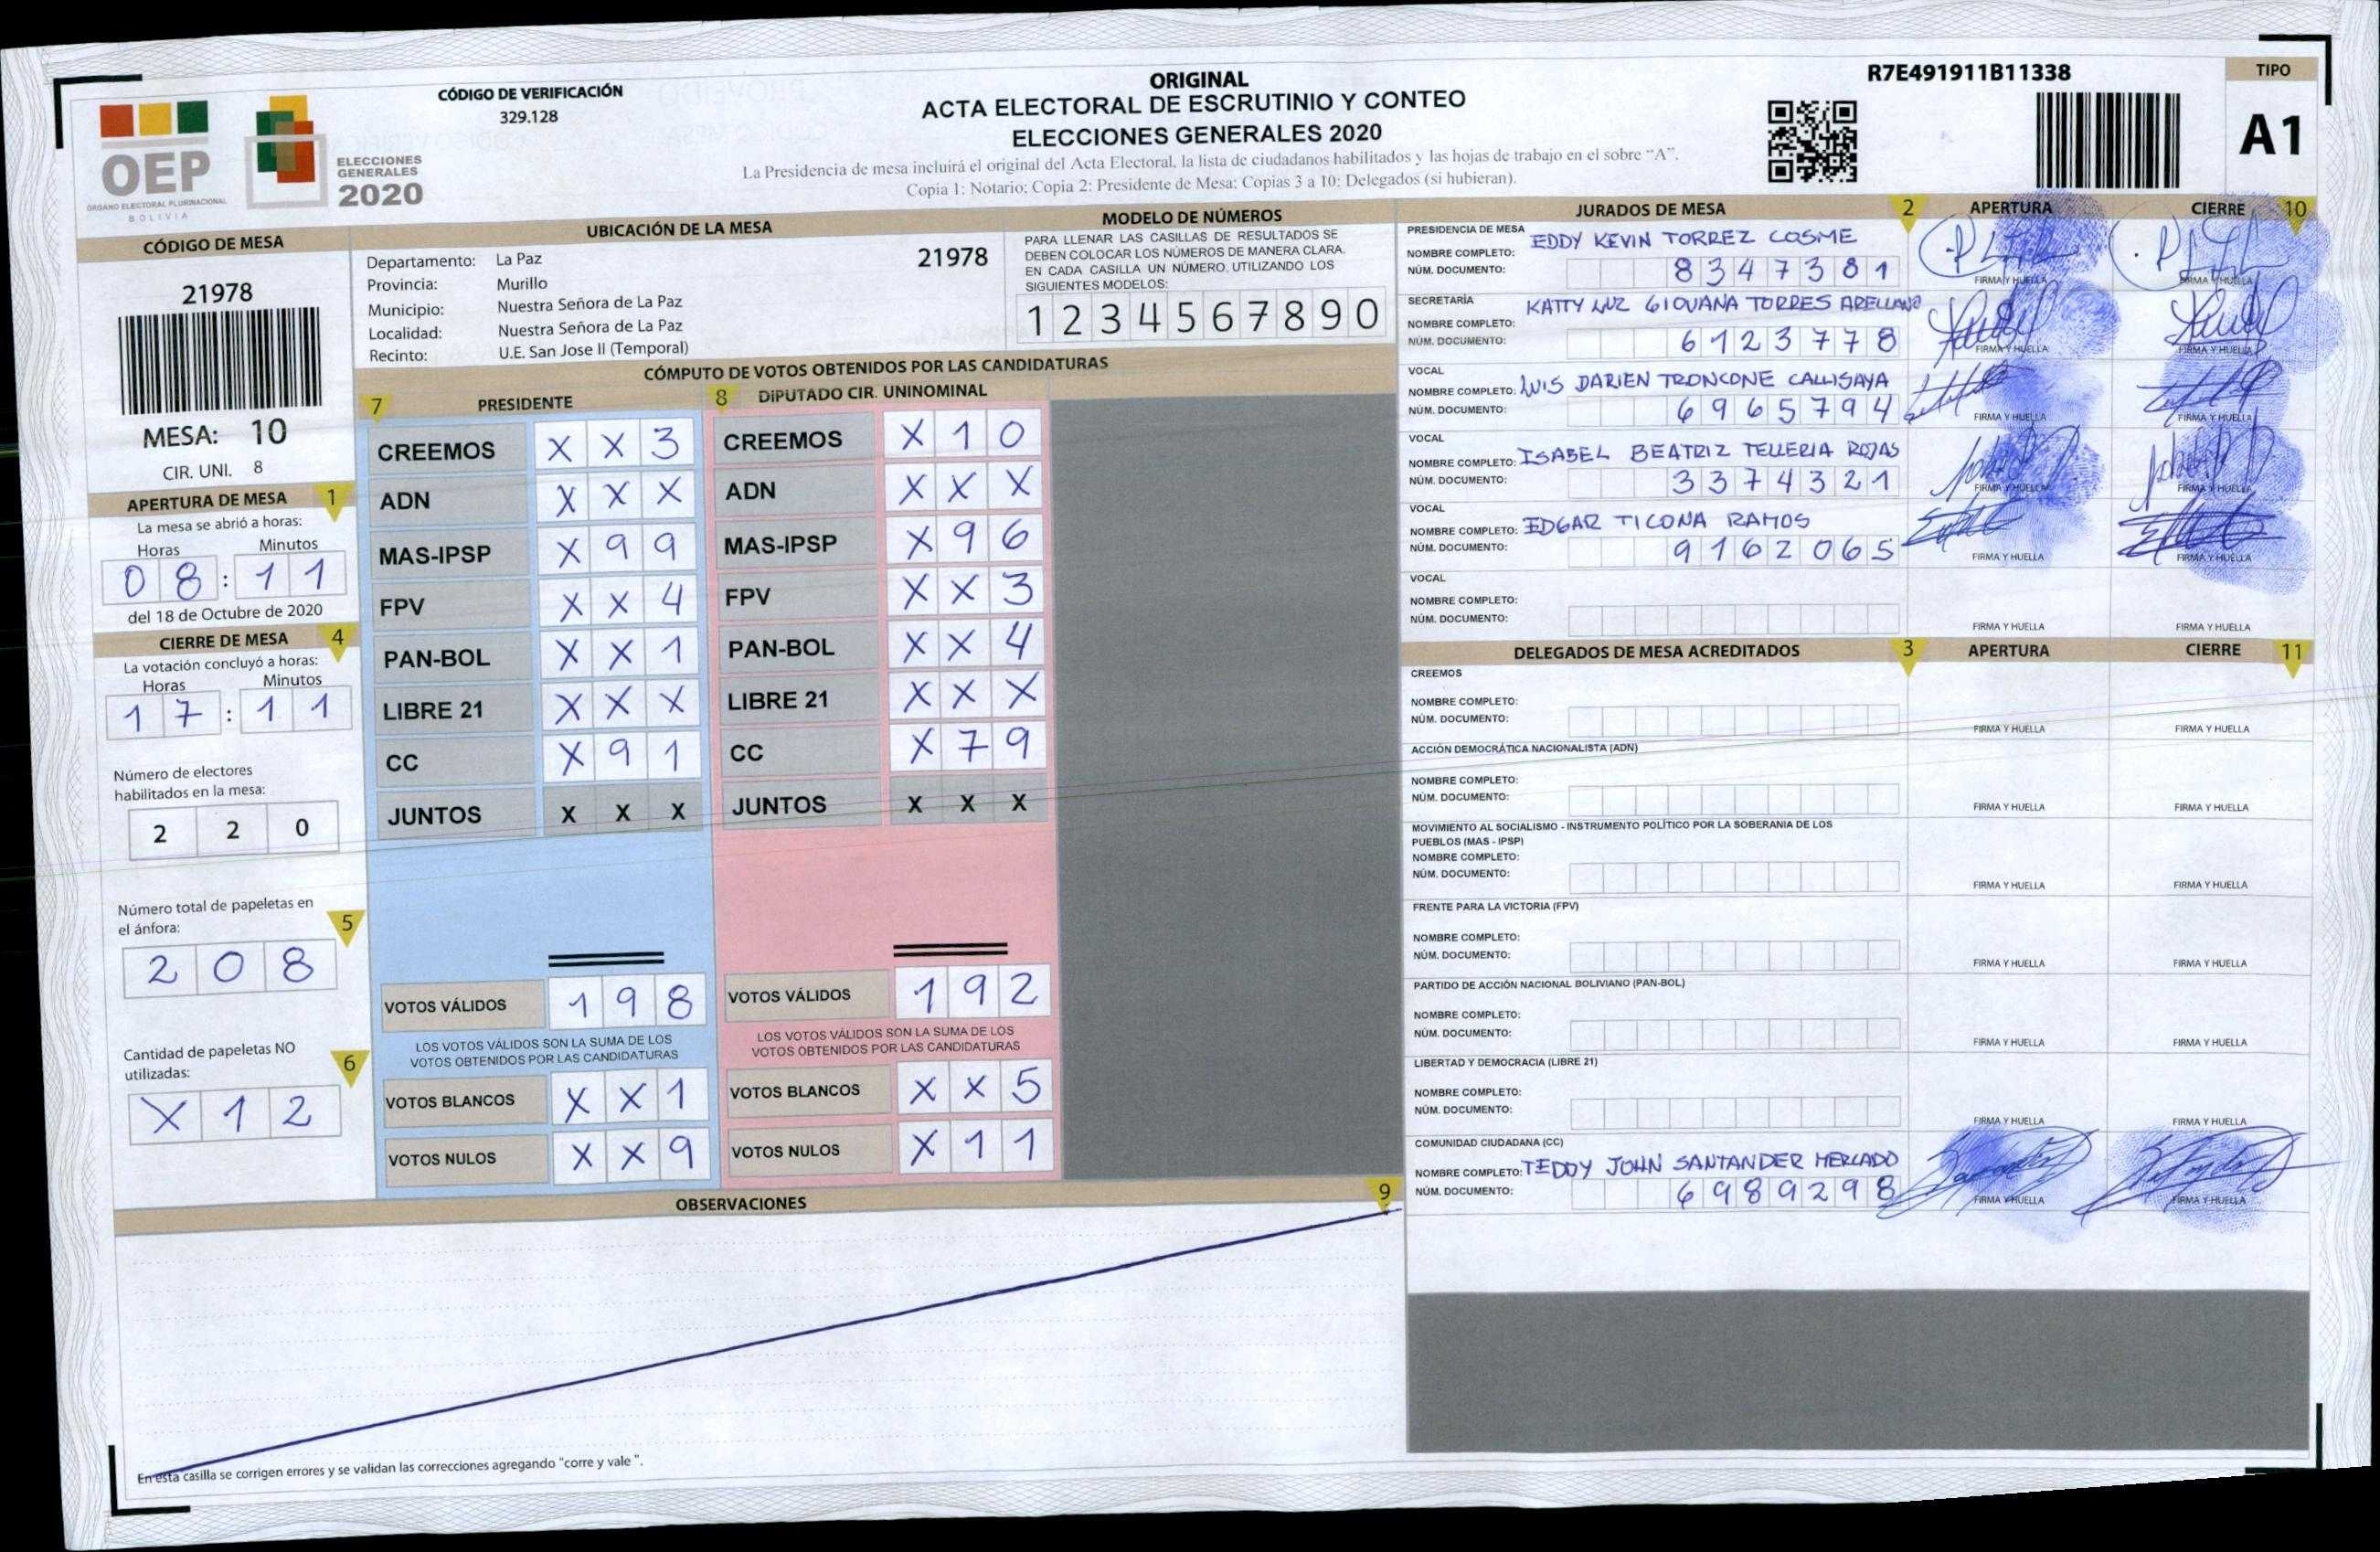 CÓDIGO DE VERIFICACIÓN
329.128
ORIGINAL
ACTA ELECTORAL DE ESCRUTINIO Y CONTEO
ELECCIONES GENERALES 2020
La Presidencia de mesa incluirá el original del Acta Electoral, la lista de ciudadanos habilitados y las hojas de trabajo en el sobre "A".
Copia 1: Notario; Copia 2: Presidente de Mesa; Copias 3 a 10: Delegados (si hubieran).
R7E491911B11338
TIPO
A1
OEP
ÓRGANO ELECTORAL PLURINACIONAL
BOLIVIA
ELECCIONES
GENERALES
2020
CÓDIGO DE MESA
21978
MESA: 10
CIR. UNI. 8
APERTURA DE MESA 1
La mesa se abrió a horas:
Horas Minutos
08:11
del 18 de Octubre de 2020
CIERRE DE MESA 4
La votación concluyó a horas:
Horas Minutos
17:11
Número de electores
habilitados en la mesa:
2 2 0
Número total de papeletas en
el ánfora: 5
2 0 8
Cantidad de papeletas NO
utilizadas: 6
X 1 2
UBICACIÓN DE LA MESA
Departamento: La Paz 21978
Provincia: Murillo
Municipio: Nuestra Señora de La Paz
Localidad: Nuestra Señora de La Paz
Recinto: U.E. San Jose II (Temporal)
MODELO DE NÚMEROS
PARA LLENAR LAS CASILLAS DE RESULTADOS SE
DEBEN COLOCAR LOS NÚMEROS DE MANERA CLARA.
EN CADA CASILLA UN NÚMERO, UTILIZANDO LOS
SIGUIENTES MODELOS:
1 2 3 4 5 6 7 8 9 0
CÓMPUTO DE VOTOS OBTENIDOS POR LAS CANDIDATURAS
7 PRESIDENTE
CREEMOS X X 3
ADN X X X
MAS-IPSP X 9 9
FPV X X 4
PAN-BOL X X 1
LIBRE 21 X X X
CC X 9 1
JUNTOS X X X
VOTOS VÁLIDOS 1 9 8
LOS VOTOS VÁLIDOS SON LA SUMA DE LOS
VOTOS OBTENIDOS POR LAS CANDIDATURAS
VOTOS BLANCOS X X 1
VOTOS NULOS X X 9
8 DIPUTADO CIR. UNINOMINAL
CREEMOS X 1 0
ADN X X X
MAS-IPSP X 9 6
FPV X X 3
PAN-BOL X X 4
LIBRE 21 X X X
CC X 7 9
JUNTOS X X X
VOTOS VÁLIDOS 1 9 2
LOS VOTOS VÁLIDOS SON LA SUMA DE LOS
VOTOS OBTENIDOS POR LAS CANDIDATURAS
VOTOS BLANCOS X X 5
VOTOS NULOS X 1 1
OBSERVACIONES 9
En esta casilla se corrigen errores y se validan las correcciones agregando "corre y vale ".
JURADOS DE MESA 2 APERTURA CIERRE 10
PRESIDENCIA DE MESA
NOMBRE COMPLETO: EDDY KEVIN TORREZ COSME
NÚM. DOCUMENTO: 8347381 FIRMA Y HUELLA FIRMA Y HUELLA
SECRETARÍA
NOMBRE COMPLETO: KATTY LUZ GIOVANA TORRES ARELLANO
NÚM. DOCUMENTO: 6123778 FIRMA Y HUELLA FIRMA Y HUELLA
VOCAL
NOMBRE COMPLETO: LUIS DARIEN TRONCONE CALLISAYA
NÚM. DOCUMENTO: 6965794 FIRMA Y HUELLA FIRMA Y HUELLA
VOCAL
NOMBRE COMPLETO: ISABEL BEATRIZ TELLERIA ROJAS
NÚM. DOCUMENTO: 3374321 FIRMA Y HUELLA FIRMA Y HUELLA
VOCAL
NOMBRE COMPLETO: EDGAR TICONA RAMOS
NÚM. DOCUMENTO: 9162065 FIRMA Y HUELLA FIRMA Y HUELLA
VOCAL
NOMBRE COMPLETO:
NÚM. DOCUMENTO: FIRMA Y HUELLA FIRMA Y HUELLA
DELEGADOS DE MESA ACREDITADOS 3 APERTURA CIERRE 11
CREEMOS
NOMBRE COMPLETO:
NÚM. DOCUMENTO: FIRMA Y HUELLA FIRMA Y HUELLA
ACCIÓN DEMOCRÁTICA NACIONALISTA (ADN)
NOMBRE COMPLETO:
NÚM. DOCUMENTO: FIRMA Y HUELLA FIRMA Y HUELLA
MOVIMIENTO AL SOCIALISMO - INSTRUMENTO POLÍTICO POR LA SOBERANIA DE LOS
PUEBLOS (MAS - IPSP)
NOMBRE COMPLETO:
NÚM. DOCUMENTO: FIRMA Y HUELLA FIRMA Y HUELLA
FRENTE PARA LA VICTORIA (FPV)
NOMBRE COMPLETO:
NÚM. DOCUMENTO: FIRMA Y HUELLA FIRMA Y HUELLA
PARTIDO DE ACCIÓN NACIONAL BOLIVIANO (PAN-BOL)
NOMBRE COMPLETO:
NÚM. DOCUMENTO: FIRMA Y HUELLA FIRMA Y HUELLA
LIBERTAD Y DEMOCRACIA (LIBRE 21)
NOMBRE COMPLETO:
NÚM. DOCUMENTO: FIRMA Y HUELLA FIRMA Y HUELLA
COMUNIDAD CIUDADANA (CC)
NOMBRE COMPLETO: TEDDY JOHN SANTANDER MERCADO
NÚM. DOCUMENTO: 6989298 FIRMA Y HUELLA FIRMA Y HUELLA